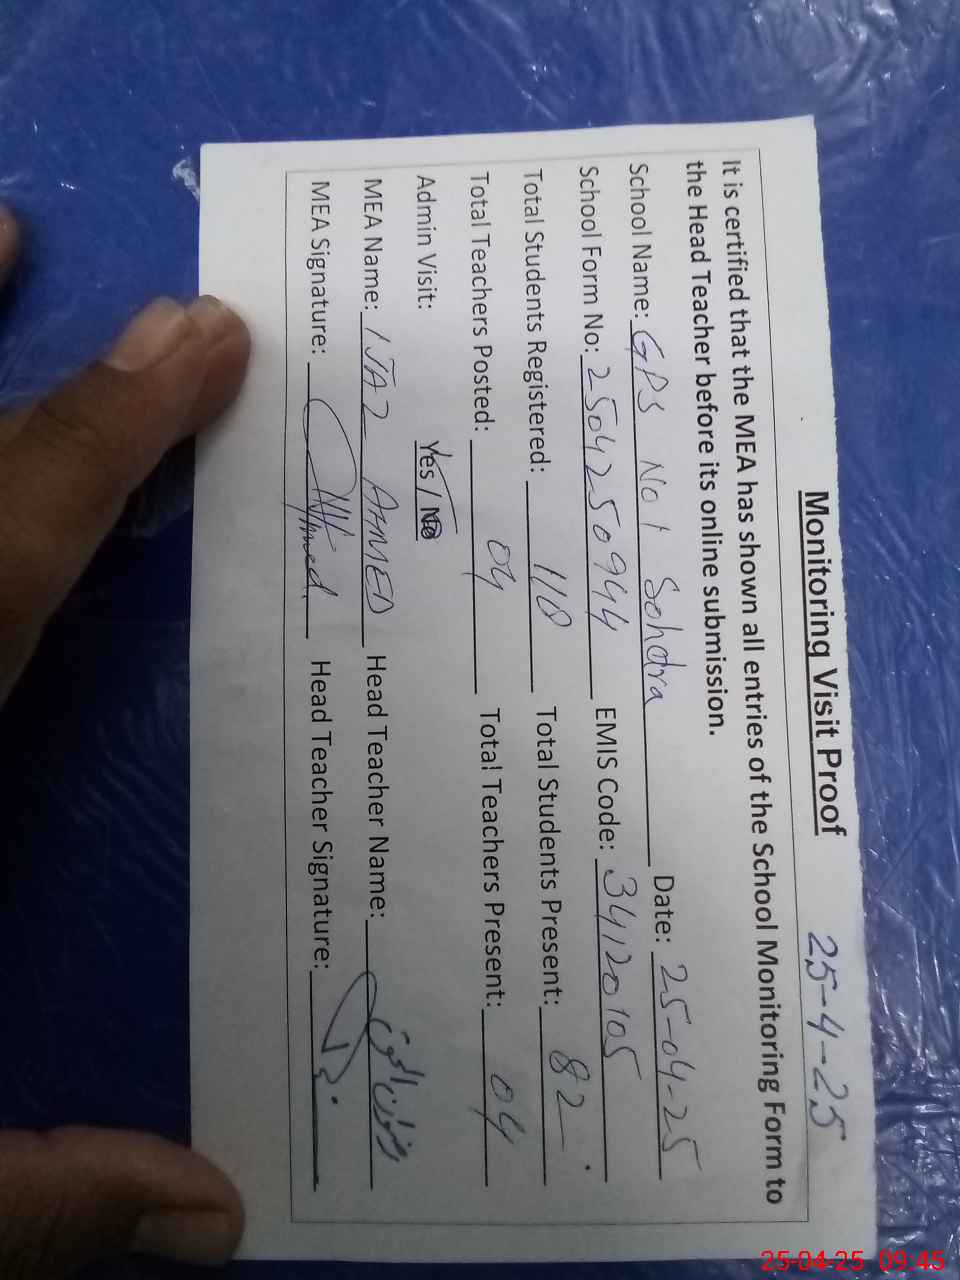 Monitoring Visit Proof 25-4-25
It is certified that the MEA has shown all entries of the School Monitoring Form to
the Head Teacher before its online submission.
School Name: GPS No 1 Sohdra Date: 25-04-25
School Form No: 2504250944 EMIS Code: 34120105
Total Students Registered: 110 Total Students Present: 82
Total Teachers Posted: 04 Total Teachers Present: 04
Admin Visit: Yes / No
MEA Name: IJAZ AHMED Head Teacher Name:
MEA Signature: Ahmed Head Teacher Signature:
25-04-25 09:45